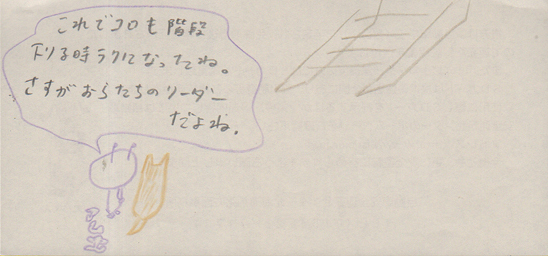 これでコロも階段
下りる時ラクになったね。
さすがおらたちのリーダー
だよね。